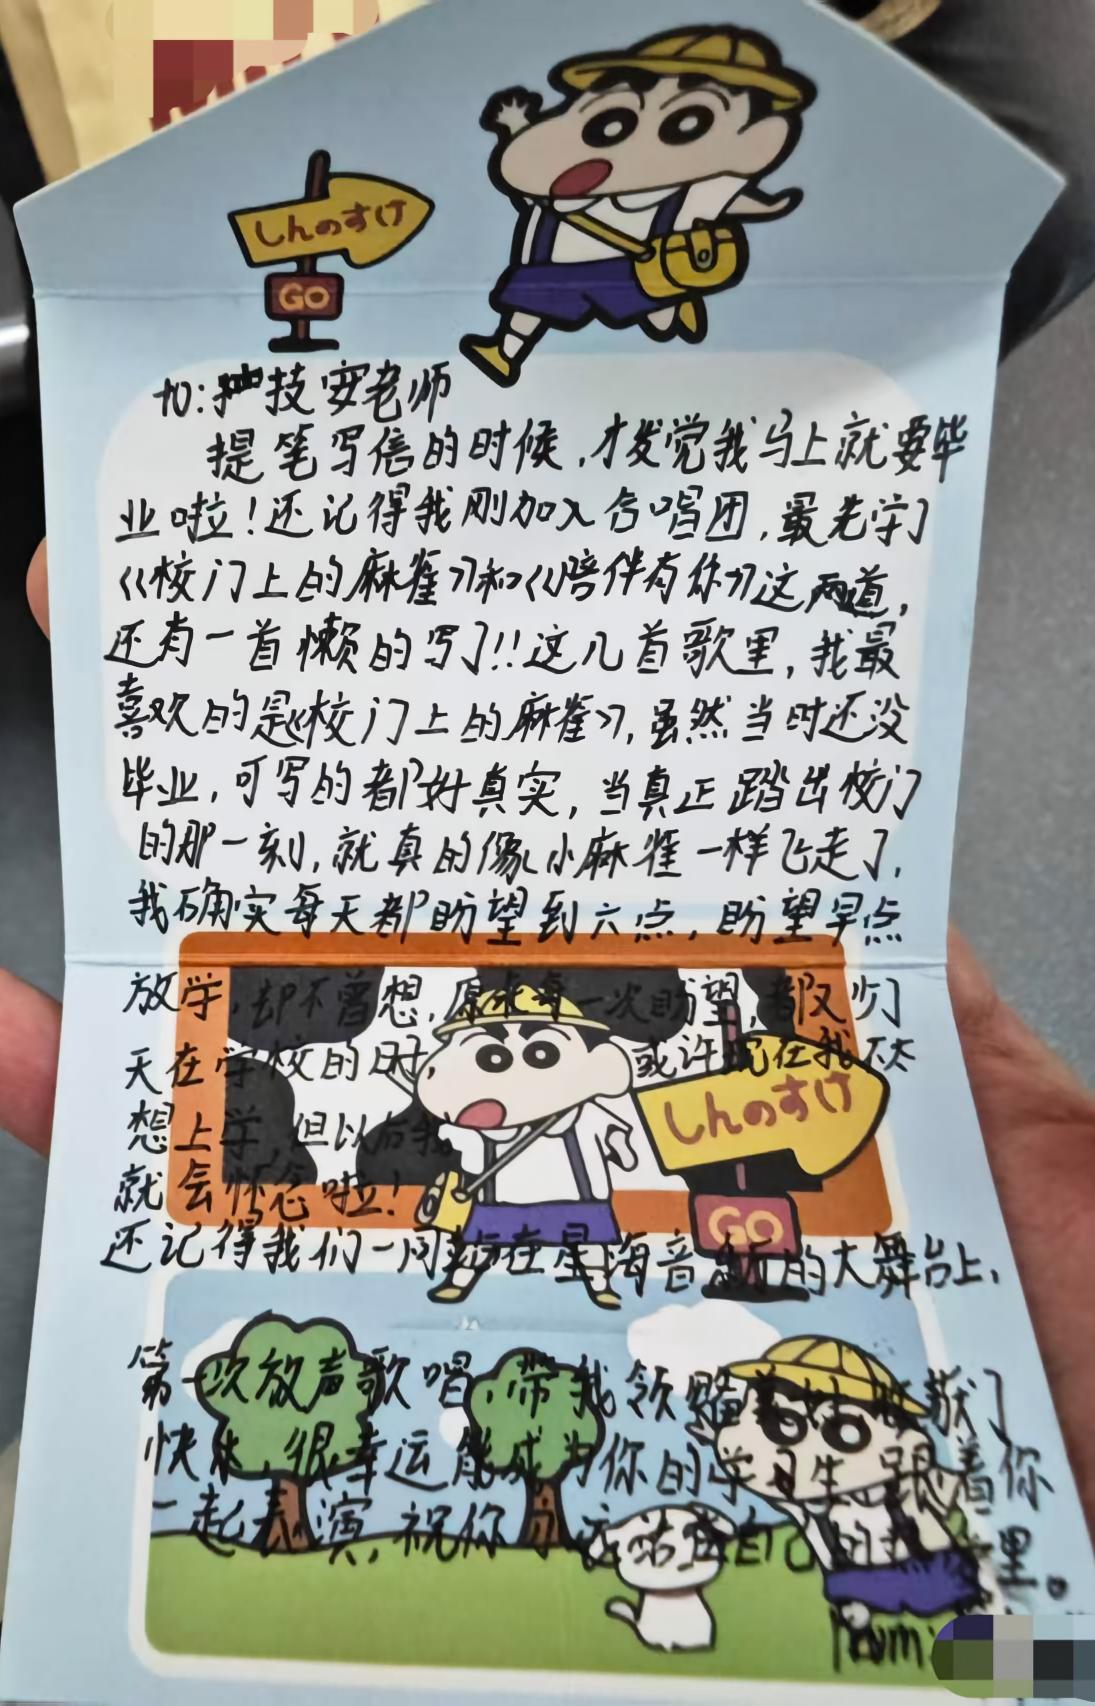 しんのすけ
GO
to:技安老师
提笔写信的时候,才发觉我马上就要毕
业啦!还记得我刚加入合唱团,最先学了
《校门上的麻雀》和《陪伴有你》这两道,
还有一首懒的写了!!这几首歌里,我最
喜欢的是《校门上的麻雀》,虽然当时还没
毕业,可写的都好真实,当真正踏出校门
的那一刻,就真的像小麻雀一样飞走了,
我确实每天都盼望到六点,盼望早点
放学,却不曾想,原来每一次盼望,都又少了
天在学校的时,或许现在我不太
想上学,但以后我
就会怀念啦!
しんのすけ
GO
还记得我们一同站在星海音乐厅的大舞台上,
第一次放声歌唱,带我领
快乐,很幸运能成为你的学生,跟着你
一起表演,祝你永远站在自己的里。
from: